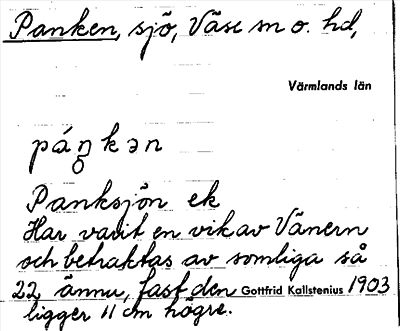 Panken, sjö, Väse sn o. hd,
Värmlands län
páŋ̥kən
Panksjön ek
Har varit en vik av Vänern
och betraktas av somliga så
22 ännu, fast den Gottfrid Kallstenius 1903
ligger 11 cm högre.